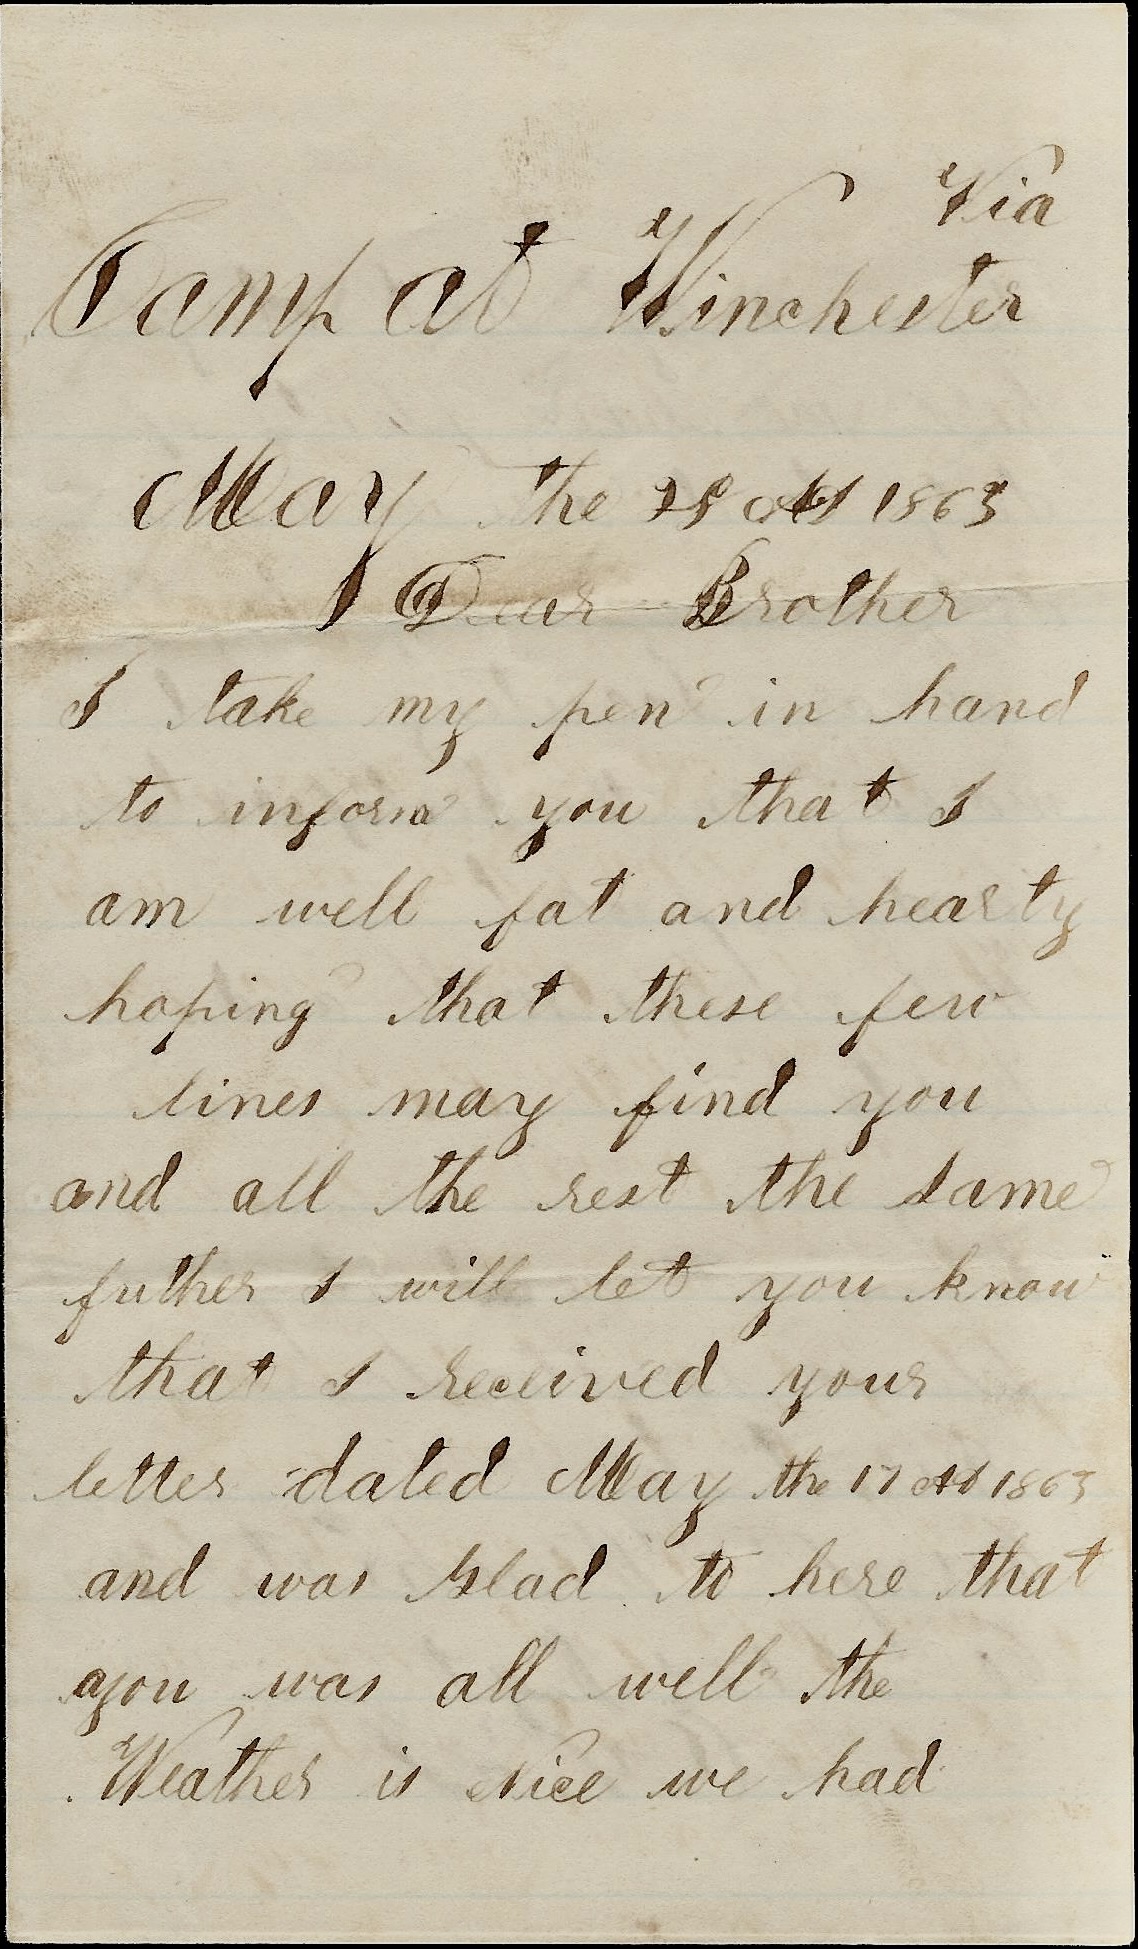 Via
Camp at Winchester
May the AD 1863
Dear Brother
I take my pen in hand
to inform you that I
am well fat and hearty
hoping that these few
lines may find you
and all the rest the same
futher I will let you know
that I received your
letter dated May the 17 AD 1863
and was Glad to here that
you was all well the
Weather is Nice we had